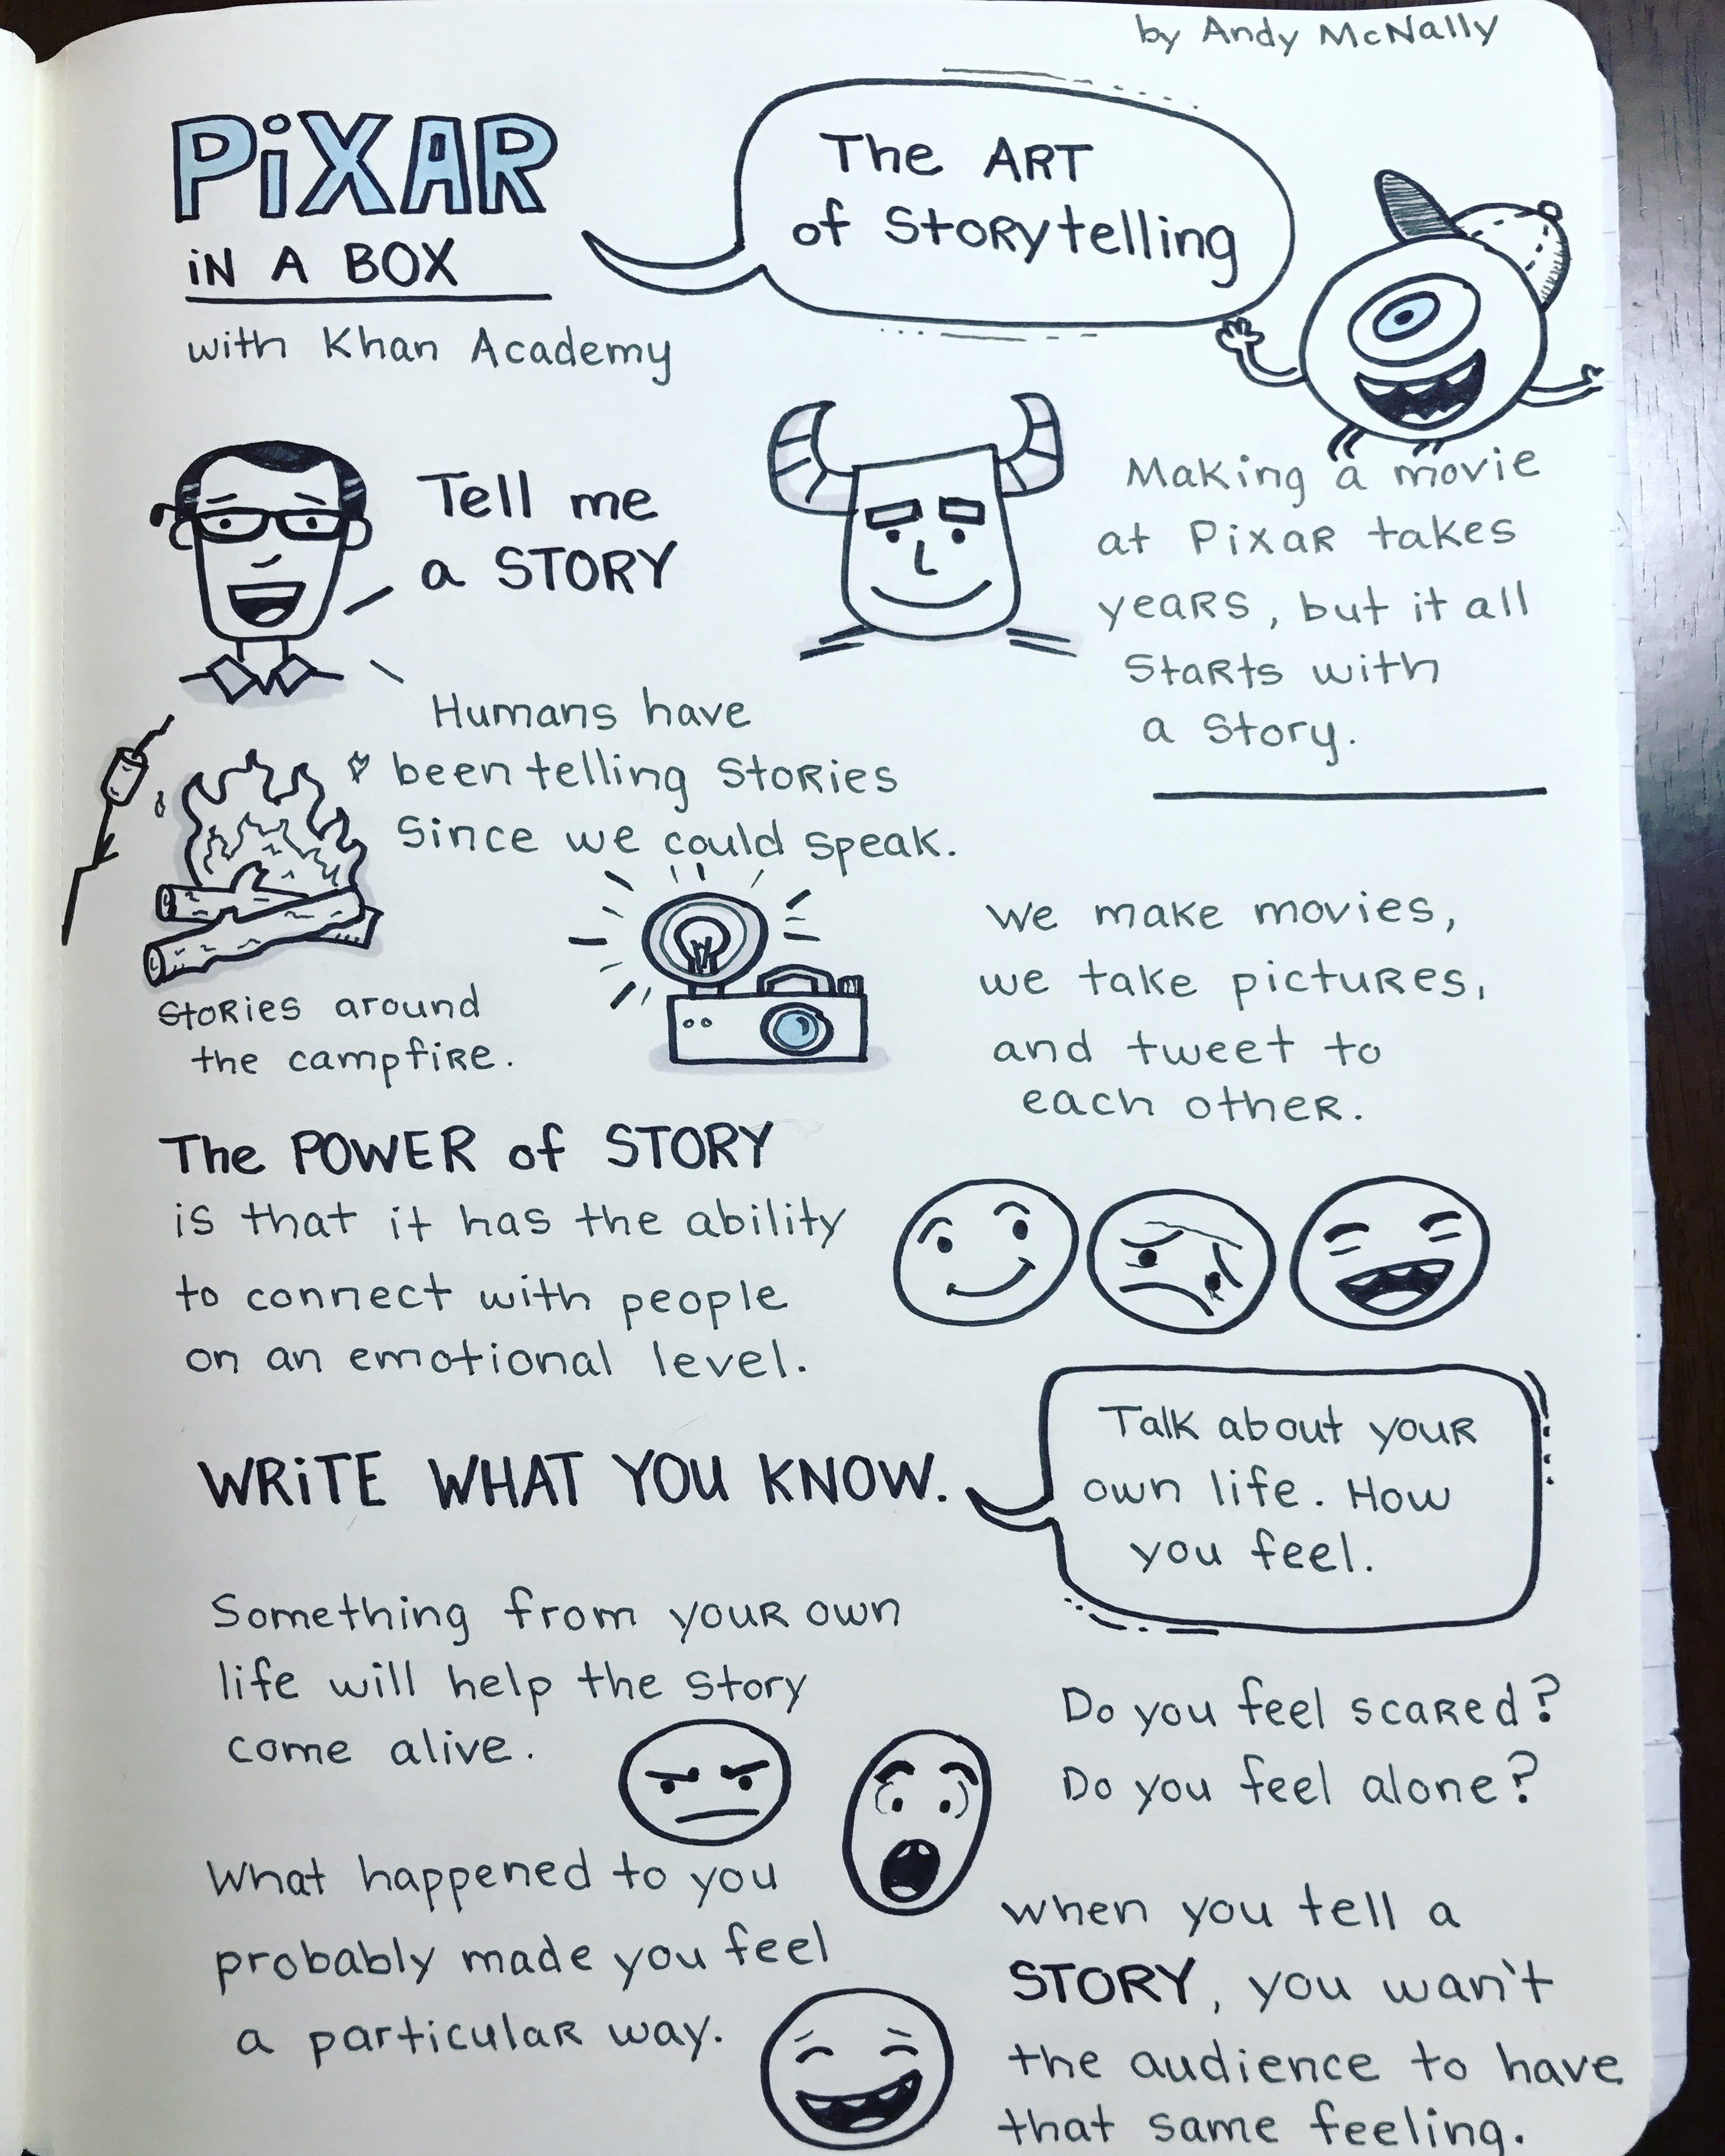 by Andy McNally
PiXAR
iN A BOX
with Khan Academy
The ART
of Storytelling
Tell me
a STORY
Making a movie
at Pixar takes
years, but it all
starts with
a story.
Humans have
been telling stories
since we could speak.
stories around
the campfire.
We make movies,
we take pictures,
and tweet to
each other.
The POWER of STORY
is that it has the ability
to connect with people
on an emotional level.
WRiTE WHAT YOU KNOW.
Talk about your
own life. How
you feel.
Something from your own
life will help the story
come alive.
Do you feel scared?
Do you feel alone?
What happened to you
probably made you feel
a particular way.
when you tell a
STORY, you wan't
the audience to have
that same feeling.